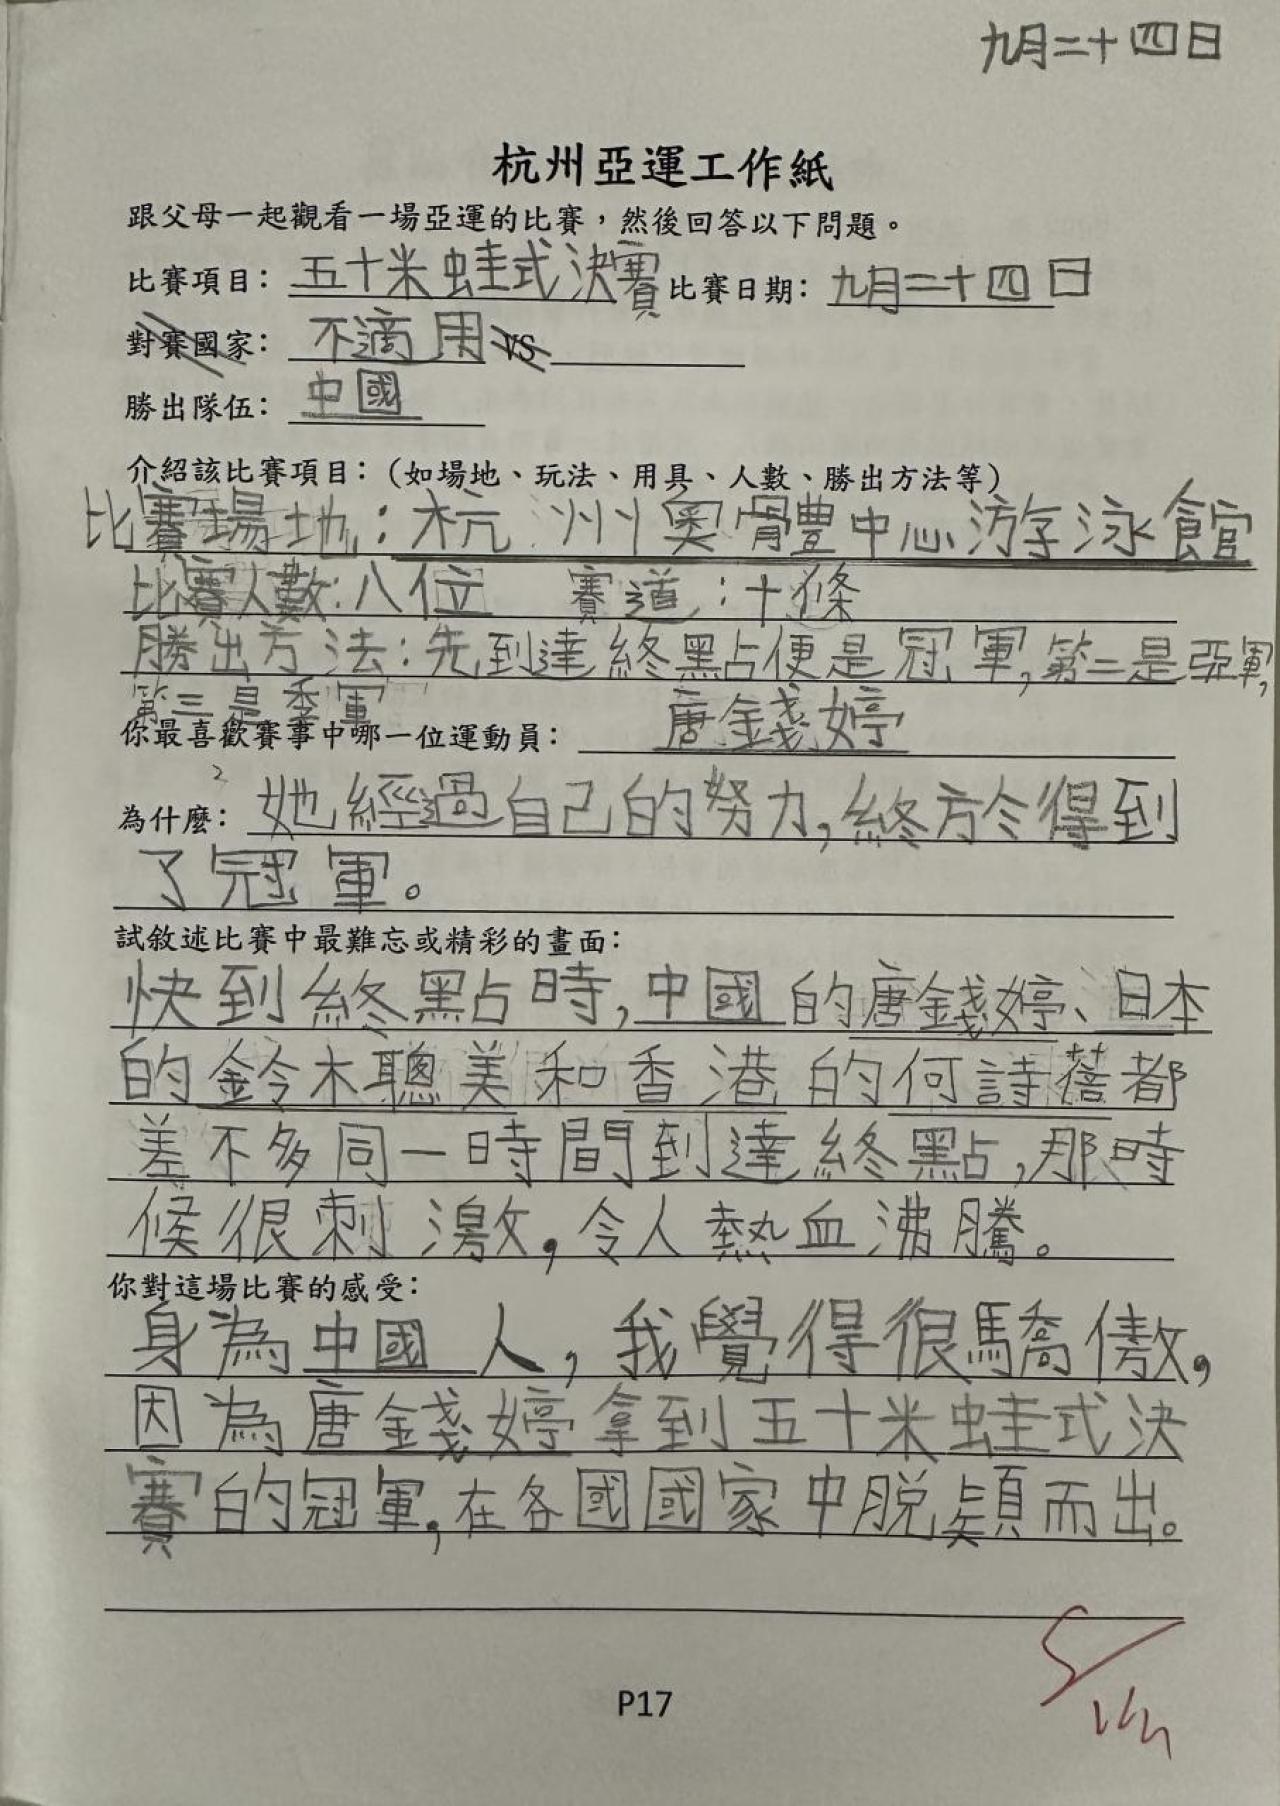 九月二十四日
杭州亞運工作紙
跟父母一起觀看一場亞運的比賽，然後回答以下問題。
比賽項目：五十米蛙式決賽 比賽日期：九月二十四日
對賽國家：不適用 VS
勝出隊伍：中國
介紹該比賽項目：（如場地、玩法、用具、人數、勝出方法等）
比賽場地：杭州奧體中心游泳館
比賽人數：八位 賽道：十條
勝出方法：先到達終點便是冠軍，第二是亞軍，
第三是季軍
你最喜歡賽事中哪一位運動員：唐錢婷
為什麼：她經過自己的努力，終於得到
了冠軍。
試敘述比賽中最難忘或精彩的畫面：
快到終點時，中國的唐錢婷、日本
的鈴木聰美和香港的何詩蓓都
差不多同一時間到達終點，那時
候很刺激，令人熱血沸騰。
你對這場比賽的感受：
身為中國人，我覺得很驕傲，
因為唐錢婷拿到五十米蛙式決
賽的冠軍，在各國國家中脫穎而出。
P17